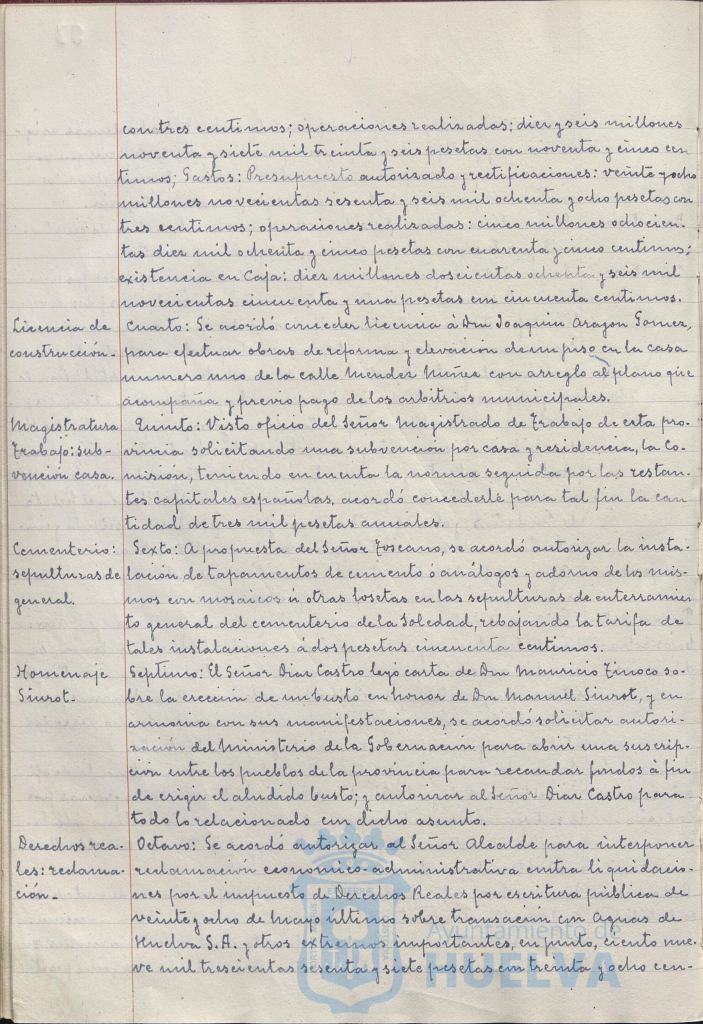 con tres centimos; operaciones realizadas: diez y seis millones
noventa y siete mil treinta y seis pesetas con noventa y cinco cen
timos; Gastos: Presupuesto autorizado y rectificaciones: veinte y ocho
millones novecientas sesenta y seis mil ochenta y ocho pesetas con
tres centimos; operaciones realizadas: cinco millones ochocien-
tas diez mil ochenta y cinco pesetas con cuarenta y cinco centimos;
existencia en Caja: diez millones doscientas ochenta y seis mil
novecientas cincuenta y una pesetas con cincuenta centimos.
Licencia de
construcción.-
Cuarto: Se acordó conceder licencia á Don Joaquin Aragon Gomez,
para efectuar obras de reforma y elevación de un piso en la casa
numero uno de la calle Mendez Nuñez con arreglo al plano que
acompaña y previo pago de los arbitrios municipales.
Magistratura
Trabajo: sub-
vencion casa.
Quinto: Visto oficio del Señor Magistrado de Trabajo de esta pro-
vincia solicitando una subvención por casa y residencia, la Co-
misión, teniendo en cuenta la norma seguida por las restan-
tes capitales españolas, acordó concederle para tal fin la can-
tidad de tres mil pesetas anuales.
Cementerio:
sepulturas de
general.
Sexto: A propuesta del Señor Toscano, se acordó autorizar la insta-
lación de tapamentos de cemento ó análogos y adorno de los mis-
mos con mosaicos ú otras losetas en las sepulturas de enterramien
to general del cementerio de la Soledad, rebajando la tarifa de
tales instalaciones á dos pesetas cincuenta centimos.
Homenaje
Siurot.-
Septimo: El Señor Diaz Castro leyó carta de Don Mauricio Tinoco so-
bre la erección de un busto en honor de Don Manuel Siurot, y en
armonia con sus manifestaciones, se acordó solicitar autori-
zación del Ministerio de la Gobernación para abrir una suscrip-
ción entre los pueblos de la provincia para recaudar fondos á fin
de erigir el aludido busto; y autorizar al Señor Diaz Castro para
todo lo relacionado con dicho asunto.
Derechos rea-
les: reclama-
ción.-
Octavo: Se acordó autorizar al Señor Alcalde para interponer
reclamación economico-administrativa contra liquidacio-
nes por el impuesto de Derechos Reales por escritura pública de
veinte y ocho de Mayo último sobre transación con Aguas de
Huelva S.A. y otros extremos importantes, en junto, ciento nue-
ve mil trescientas sesenta y siete pesetas con treinta y ocho cen-
Ayuntamiento de
HUELVA